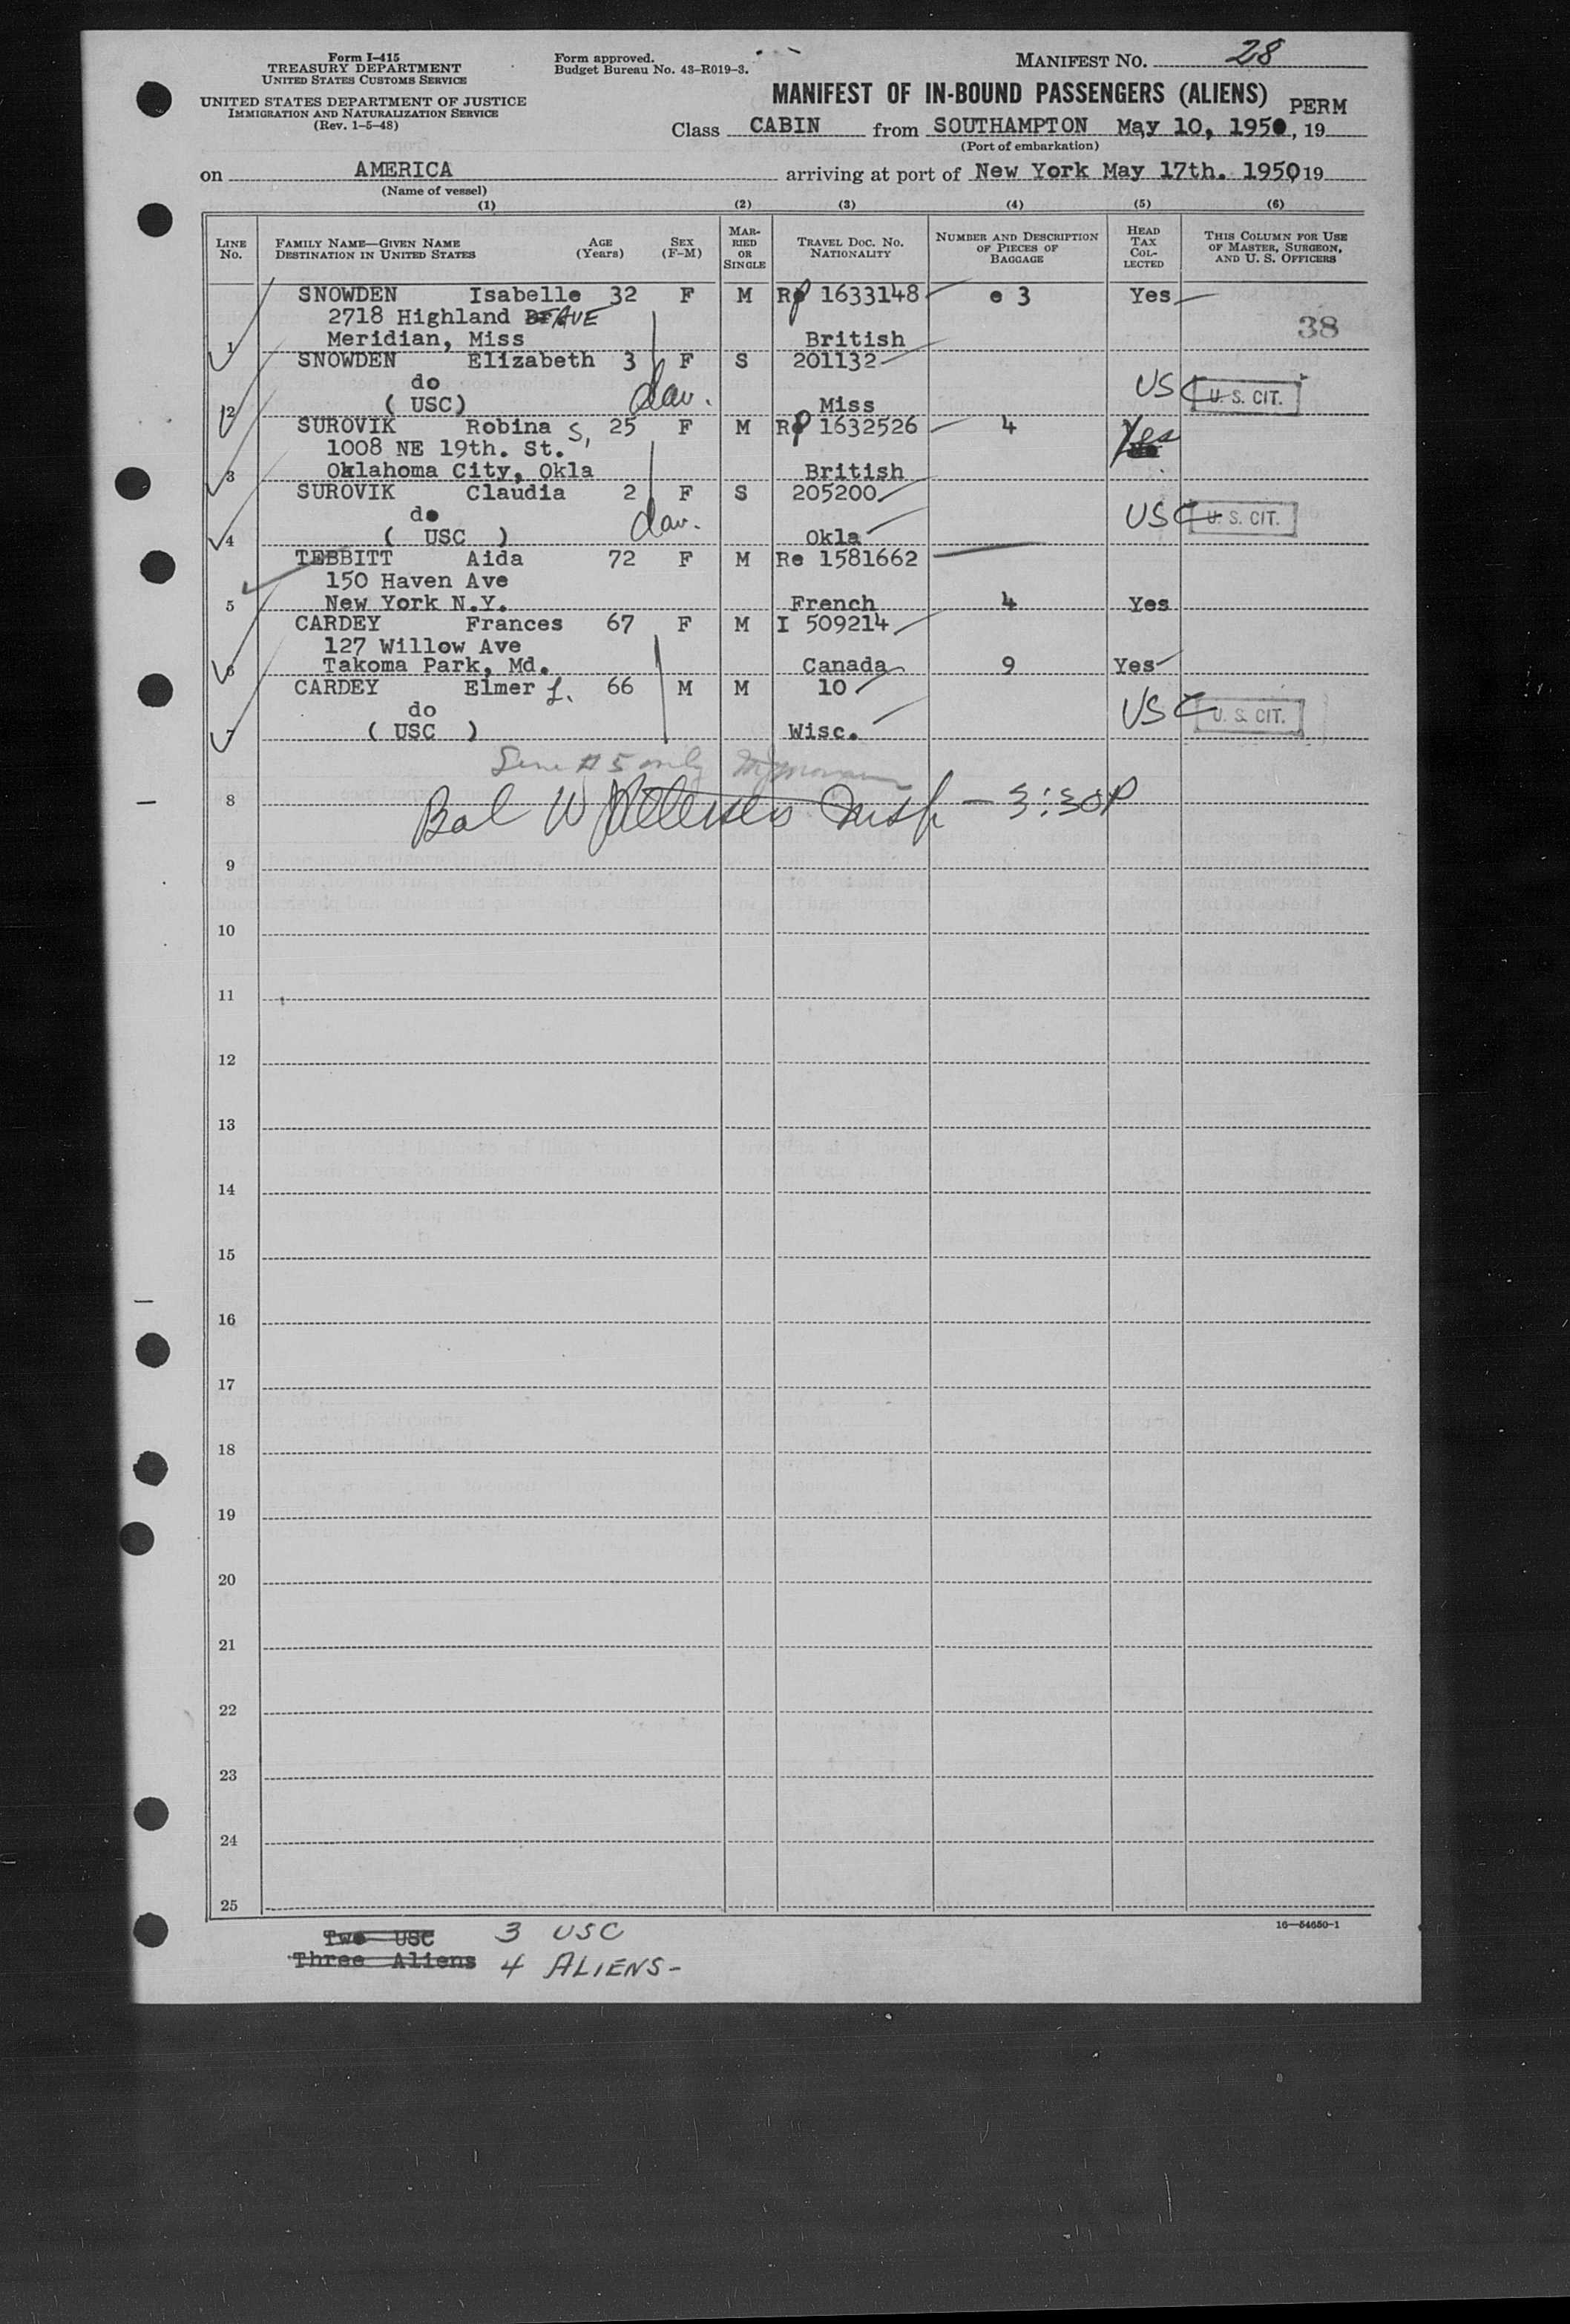 Form I-415
TREASURY DEPARTMENT
UNITED STATES CUSTOMS SERVICE
UNITED STATES DEPARTMENT OF JUSTICE
IMMIGRATION AND NATURALIZATION SERVICE
(Rev. 1-5-48)
Form approved.
Budget Bureau No. 43-R019-3.
MANIFEST NO. 28
MANIFEST OF IN-BOUND PASSENGERS (ALIENS) PERM
Class CABIN from SOUTHAMPTON May 10, 1950, 19
(Port of embarkation)
on AMERICA arriving at port of New York May 17th. 1950 19
(Name of vessel)
(1) (2) (3) (4) (5) (6)
LINE NO. FAMILY NAME—GIVEN NAME DESTINATION IN UNITED STATES AGE (Years) SEX (F-M) MARRIED OR SINGLE TRAVEL DOC. NO. NATIONALITY NUMBER AND DESCRIPTION OF PIECES OF BAGGAGE HEAD TAX COLLECTED THIS COLUMN FOR USE OF MASTER, SURGEON, AND U. S. OFFICERS
SNOWDEN Isabelle 32 F M Rp 1633148 3 Yes
2718 Highland AVE 38
1 Meridian, Miss British
SNOWDEN Elizabeth 3 F S 201132
do dau. USC U. S. CIT.
2 ( USC) Miss
SUROVIK Robina S, 25 F M Rp 1632526 4 Yes
1008 NE 19th. St.
3 Oklahoma City, Okla British
SUROVIK Claudia 2 F S 205200
do dau. USC U. S. CIT.
4 ( USC ) Okla
TEBBITT Aida 72 F M Re 1581662
150 Haven Ave
5 New York N.Y. French 4 Yes
CARDEY Frances 67 F M I 509214
127 Willow Ave
6 Takoma Park, Md. Canada 9 Yes
CARDEY Elmer L. 66 M M 10
do USC U. S. CIT.
7 ( USC ) Wisc.
Line #5 only
8 Bal W Insp - 3:30P
9
10
11
12
13
14
15
16
17
18
19
20
21
22
23
24
25
16—54650-1
Two USC 3 USC
Three Aliens 4 ALIENS-